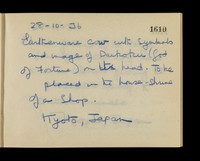 28-10-36
1610
Earthenware cow with Symbols
and image of Daikoku (God
of Fortune) on its head. To be
placed in the house-shrine
of a Shop.
Kyoto, Japan